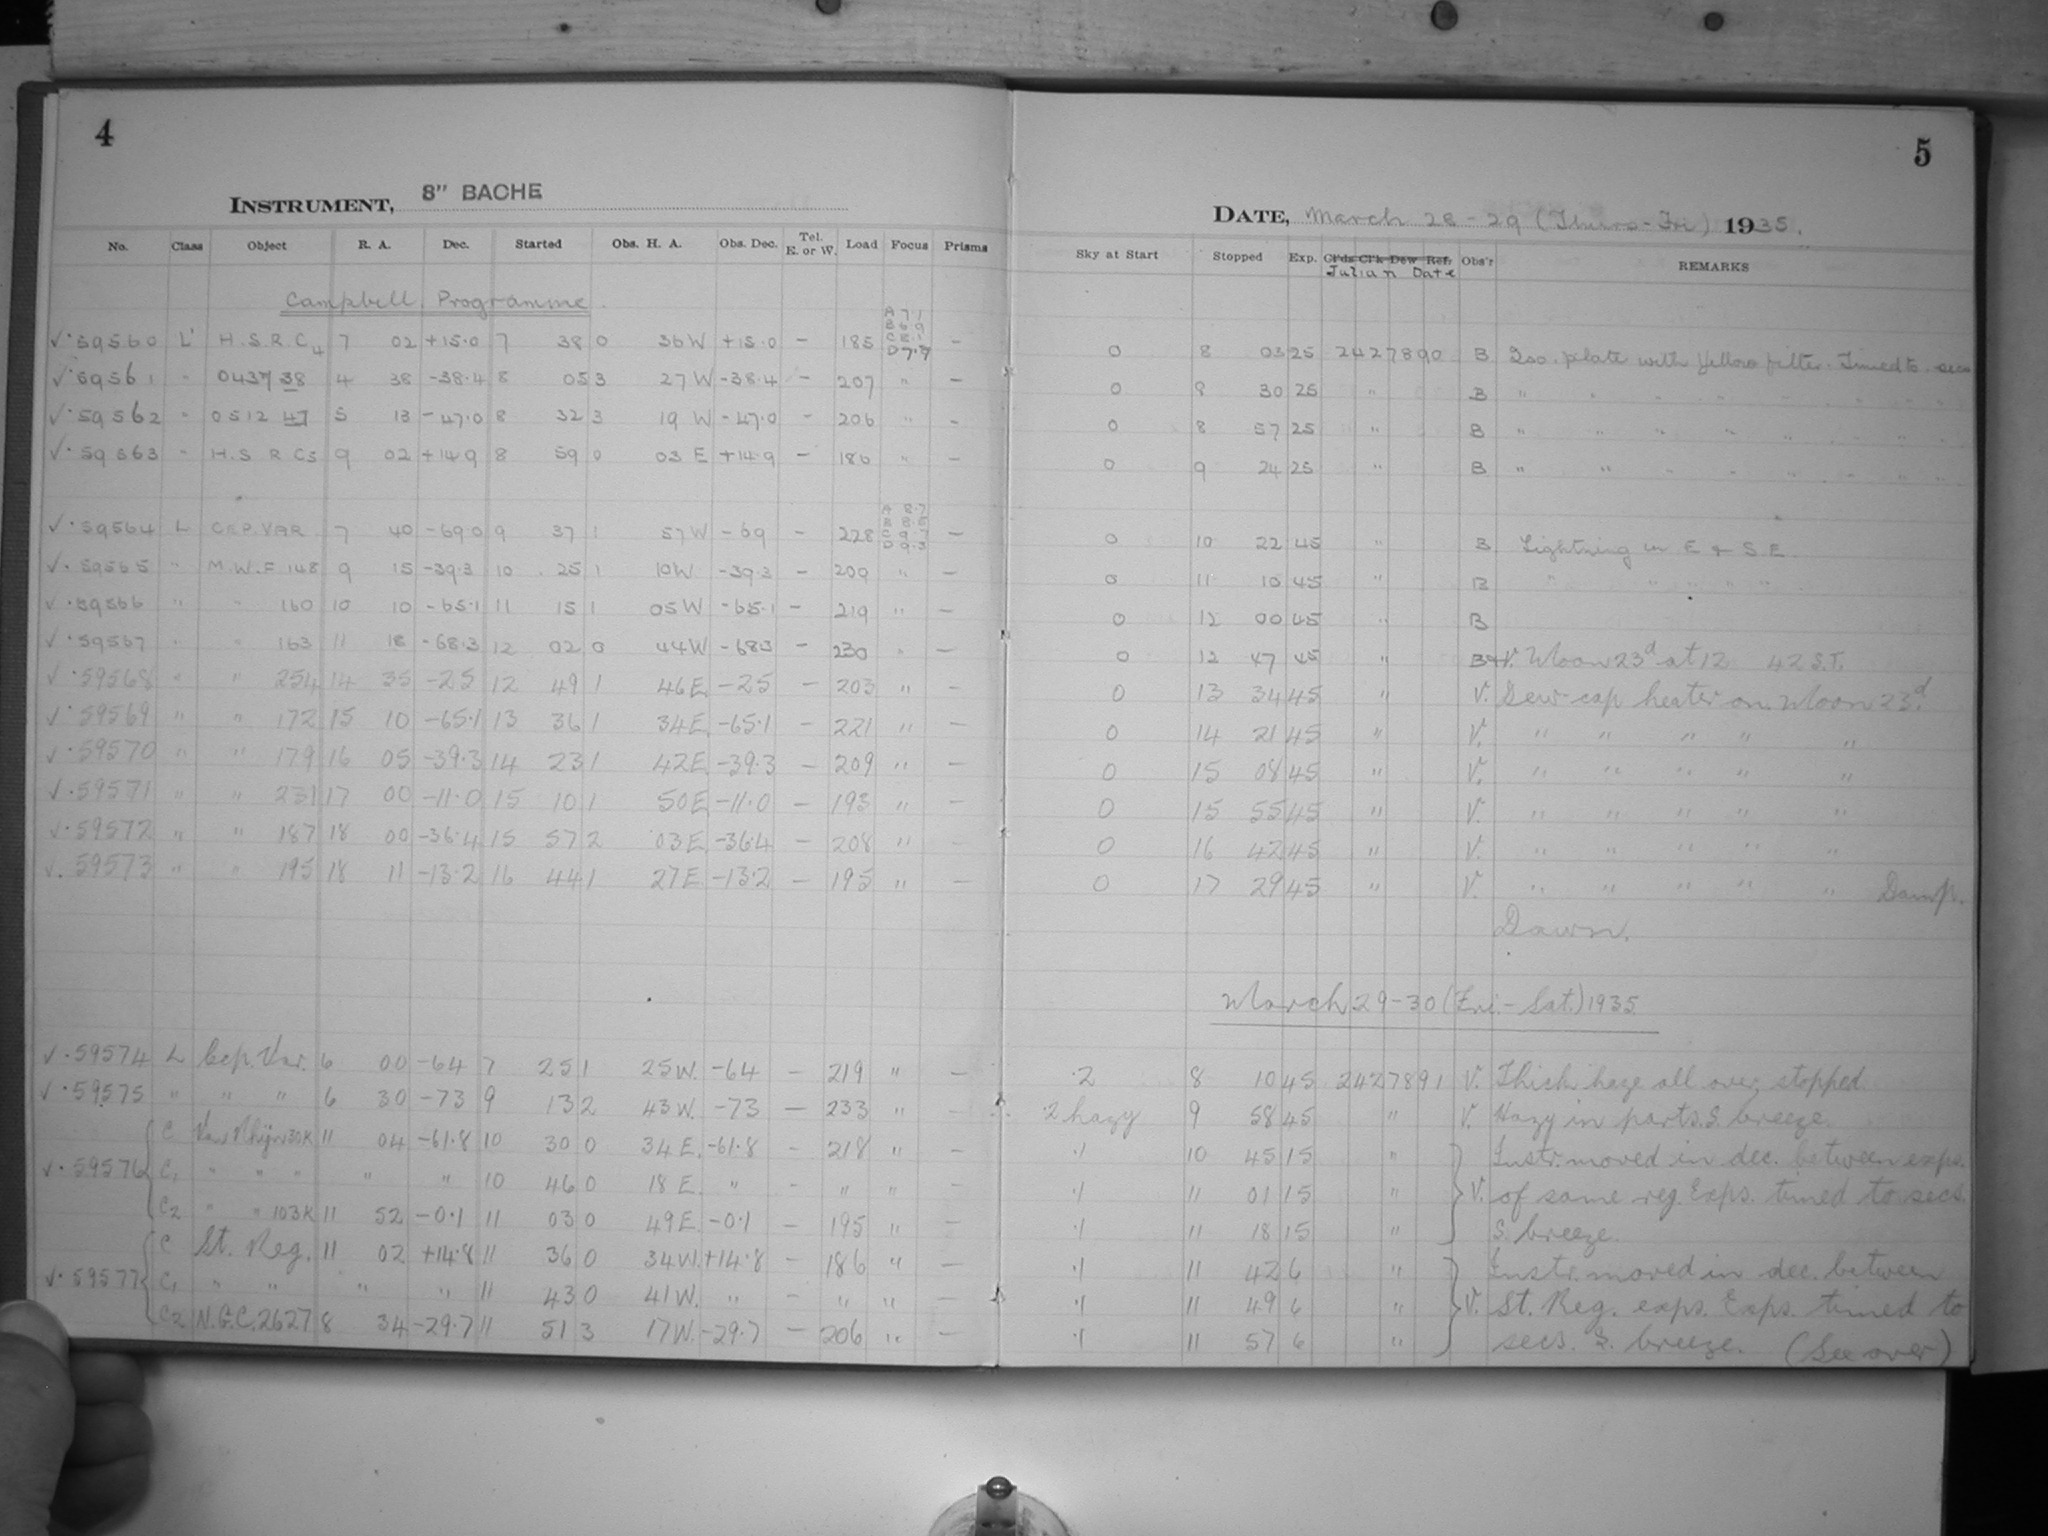 4
INSTRUMENT, 8" BACHE
No. Class Object R. A. Dec. Started Obs. H. A. Obs. Dec. Tel. E. or W. Load Focus Prisms
Campbell Programme
A 7.1
B 6.9
C 8.1
D 7.7
√·59560 L' H.S.R.C4 7 02 +15.0 7 38 0 36W +15.0 – 185 –
√·59561 " 0437 38 4 38 -38.4 8 05 3 27W -38.4 – 207 " –
√·59562 " 0512 47 5 13 -47.0 8 32 3 19 W -47.0 – 206 " –
√·59563 " H.S R C5 9 02 +14.9 8 59 0 03 E +14.9 – 186 " –
√·59564 L CEP. VAR. 7 40 -69.0 9 37 1 57W -69 – 228 –
√·59565 " M.W.F 148 9 15 -39.3 10 25 1 10W -39.3 – 209 " –
√·59566 " " 160 10 10 -65.1 11 15 1 05W -65.1 – 219 " –
√·59567 " " 163 11 18 -68.3 12 02 0 44W -68.3 – 230 " –
√·59568 " " 254 14 35 -25 12 49 1 46E. -25 – 203 " –
√·59569 " " 172 15 10 -65.1 13 36 1 34E. -65.1 – 221 " –
√·59570 " " 179 16 05 -39.3 14 23 1 42E. -39.3 – 209 " –
√·59571 " " 231 17 00 -11.0 15 10 1 50E. -11.0 – 193 " –
√·59572 " " 187 18 00 -36.4 15 57 2 03E. -36.4 – 208 " –
√·59573 " " 195 18 11 -13.2 16 44 1 27E. -13.2 – 195 " –
√·59574 L Cep. Var. 6 00 -64 7 25 1 25W. -64 – 219 " –
√·59575 " " " 6 30 -73 9 13 2 43W. -73 – 233 " –
C Van Rhijn 30K 11 04 -61.8 10 30 0 34E. -61.8 – 218 " –
√·59576 C1 " " " " " 10 46 0 18 E. " – " " –
C2 " " 103K 11 52 -0.1 11 03 0 49E. -0.1 – 195 " –
C St. Reg. 11 02 +14.8 11 36 0 34W. +14.8 – 186 " –
√·59577 C1 " " " " 11 43 0 41W. " – " " –
C2 N.G.C. 2627 8 34 -29.7 11 51 3 17W. -29.7 – 206 " –
5
DATE, March 28-29 (Thurs-Fri) 1935.
Sky at Start Stopped Exp. Cl'ds Cl'k Dew Ref. Obs'r REMARKS
Julian Date
0 8 03 25 2427890 B Iso. plate with yellow filter. Timed to secs
0 8 30 25 " B " " " " " " " "
0 8 57 25 " B " " " " " " " "
0 9 24 25 " B " " " " " " " "
0 10 22 45 " B Lightning in E & S.E.
0 11 10 45 " B " " " " "
0 12 00 45 " B
0 12 47 45 " B&V. Moon 23d at 12 42 S.T.
0 13 34 45 " V. Dew-cap heater on. Moon 23d.
0 14 21 45 " V. " " " " "
0 15 08 45 " V. " " " " "
0 15 55 45 " V. " " " " "
0 16 42 45 " V. " " " " "
0 17 29 45 " V. " " " " " Damp.
Dawn.
March 29-30 (Fri.-Sat.) 1935.
.2 8 10 45 2427891 V. Thick haze all over, stopped
.2 hazy 9 58 45 " V. Hazy in parts. S. breeze.
.1 10 45 15 " Instr. moved in dec. between exps.
.1 11 01 15 " V. of same reg. Exps. timed to secs.
.1 11 18 15 " S. breeze.
.1 11 42 6 " Instr. moved in dec. between
.1 11 49 6 " V. St. Reg. exps. Exps. timed to
.1 11 57 6 " secs. S. breeze. (See over)